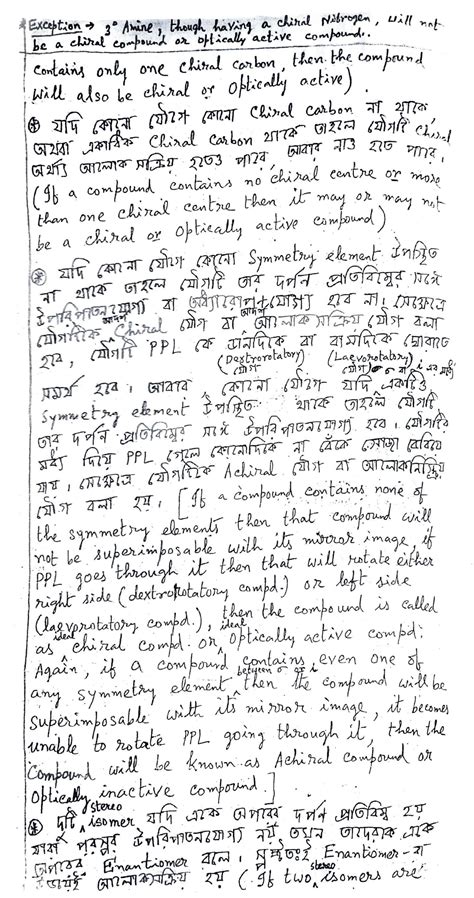 Exception → 3° Amine, though having a chiral Nitrogen, will not
be a chiral compound or optically active compound.
contains only one chiral carbon, then the compound
will also be chiral or optically active)
⊛ যদি কোনো যৌগে কোনো Chiral carbon না থাকে,
অথবা একাধিক Chiral carbon থাকে তাহলে যৌগটি Chiral
অর্থাৎ আলোক সক্রিয় হতেও পারে, আবার নাও হতে পারে,
(If a compound contains no chiral centre or more
than one chiral centre then it may or may not
be a chiral or optically active compound)
⊛ যদি কোনো যৌগে কোনো Symmetry element উপস্থিত
না থাকে তাহলে যৌগটি তার দর্পন প্রতিবিম্বের সঙ্গে
উপরিপাতনযোগ্য বা অধ্যারোপণযোগ্য হবে না। সেক্ষেত্রে
যৌগটিকে আদর্শ Chiral যৌগ বা আদর্শ আলোক সক্রিয় যৌগ বলা
হবে, যৌগটি PPL কে ডানদিকে বা বামদিকে ঘোরাতে
(Dextrorotatory) (Laevorotatory)
যৌগ যৌগ
সমর্থ হবে। আবার, কোনো যৌগে যদি একটিও
Symmetry element উপস্থিত থাকে তাহলে যৌগটি
তার দর্পন প্রতিবিম্বের সঙ্গে উপরিপাতনযোগ্য হবে। যৌগটির
মধ্য দিয়ে PPL গেলে কোনোদিকে না বেঁকে সোজা বেরিয়ে
যায়। সেক্ষেত্রে যৌগটিকে Achiral যৌগ বা আলোকনিষ্ক্রিয়
যৌগ বলা হয়। [If a compound contains none of
the symmetry elements then that compound will
not be superimposable with its mirror image, if
PPL goes through it then that will rotate either
right side (dextrorotatory compd.) or left side
(laevorotatory compd.), then the compound is called
as ideal chiral compd. or ideal optically active compd:
Again, if a compound contains even one of
any symmetry element between σ or i then the compound will be
superimposable with its mirror image, it becomes
unable to rotate PPL going through it, then the
Compound will be known as Achiral compound or
Optically inactive compound.]
⊛ দুটি stereo isomer যদি একে অপরের দর্পন প্রতিবিম্ব হয়
যারা পরস্পর উপরিপাতনযোগ্য নয় তখন তাদেরকে একে
অপরের Enantiomer বলে। Enantiomer-রা
আলোকসক্রিয় হয় (If two stereo isomers are